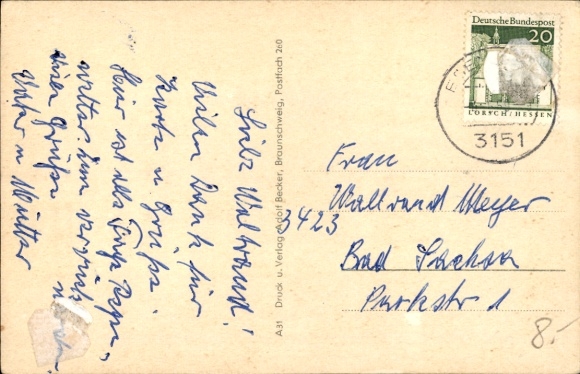 Liebe Waltraud!
Vielen Dank für
Karte u. Grüße.
Hier ist alle Tage Regen,
wetter zum verrückt
viele Grüße
Vater u Mutter
A31 Druck u. Verlag Adolf Becker, Braunschweig, Postfach 260
Deutsche Bundespost
20
LORSCH/HESSEN
3151
Frau
Waltraud Meyer
3423
Bad Sachsa
Parkstr 1
8.-